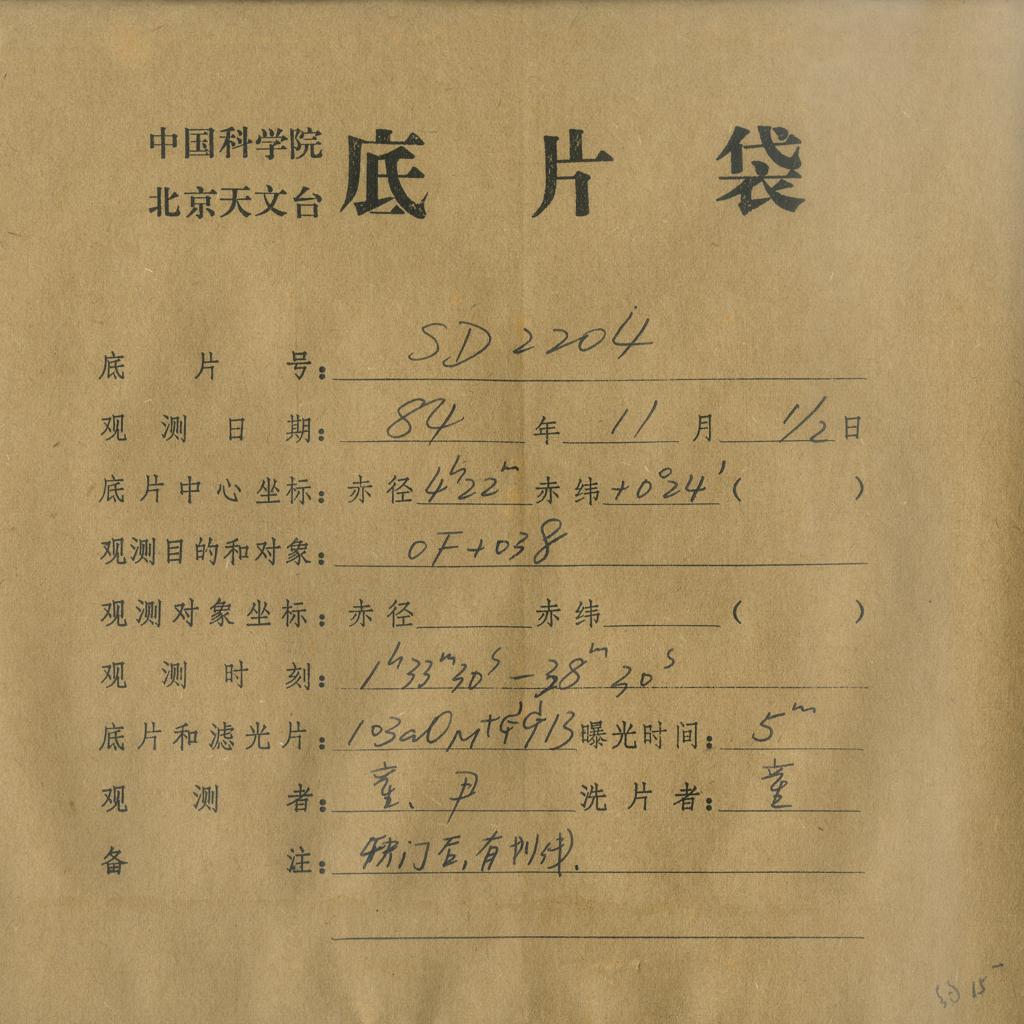 中国科学院
北京天文台
底片袋
底片号：SD2204
观测日期：84年11月1/2日
底片中心坐标：赤径4h22m赤纬+0°24′（ ）
观测目的和对象：OF+038
观测对象坐标：赤径 赤纬 （ ）
观测时刻：1h33m30s—38m30s
底片和滤光片：103aO 13曝光时间：5m
观测者：童、尹 洗片者：童
备注：快门后,有划线.
15